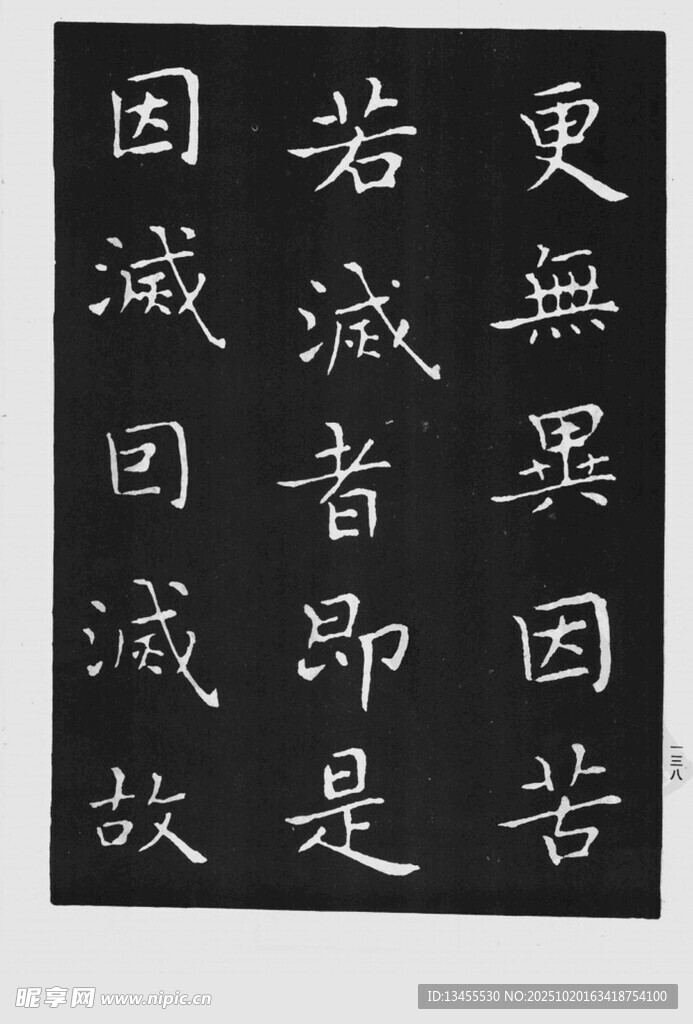 更無異因苦
若滅者即是
因滅囙滅故
一三八
昵享网 www.nipic.cn
ID:13455530 NO:20251020163418754100